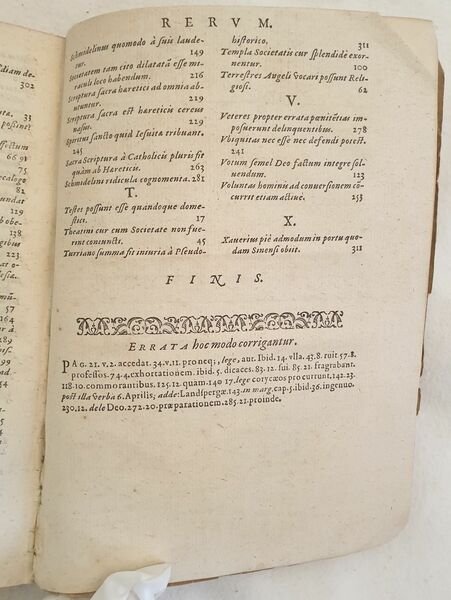 RERVM.
Schmidelinus quomodo à suis laude-
tur. 149
Societatem tam cito dilatatã esse mi-
raculi loco habendum. 216
Scriptura sacra hæretici ad omnia ab-
utuntur. 229
Scriptura sacra est hæreticis cereus
nasus. 229
Spiritus sancto quid Iesuitæ tribuant.
245
Sacra Scriptura à Catholicis pluris fit
quàm ab Hæreticis. 263
Schmidelini ridicula cognomenta. 281
T.
Testes possunt esse quandoque dome-
stici. 17
Theatini cur cum Societate non fue-
rint coniuncti. 45
Turriano summa fit iniuria à Pseudo-
historico. 311
Templa Societatis cur splendidè exor-
nentur. 100
Terrestres Angeli vocari possunt Reli-
giosi. 62
V.
Veteres propter errata pœnitẽtias im-
posuerunt delinquentibus. 278
Vbiquitas nec esse nec defendi potest.
241
Votum semel Deo factum integrè sol-
uendum. 123
Voluntas hominis ad conuersionem cõ-
currit etiam actiuè. 253
X.
Xauerius piè admodum in portu quo-
dam Sinensi obiit. 311
FINIS.
ERRATA hoc modo corrigantur.
PAG. 21. v. 2. accedat. 34. v. 11. pro neq;, lege, aut. Ibid. 14. vlla. 43. 8. ruit. 57. 8.
professos. 74. 4. exhortationem. ibid. 5. dicaces. 83. 12. fui. 85. 21. fragrabant.
118. 10. commorantibus. 125. 12. quam. 140. 17. lege corycæos procurrunt. 142. 23.
post illa verba 6. Aprilis; adde: Landspergæ. 143. in marg. cap. 5. ibid. 36. ingenuo.
230. 12. dele Deo. 272. 20. præparationem. 285. 21. proinde.